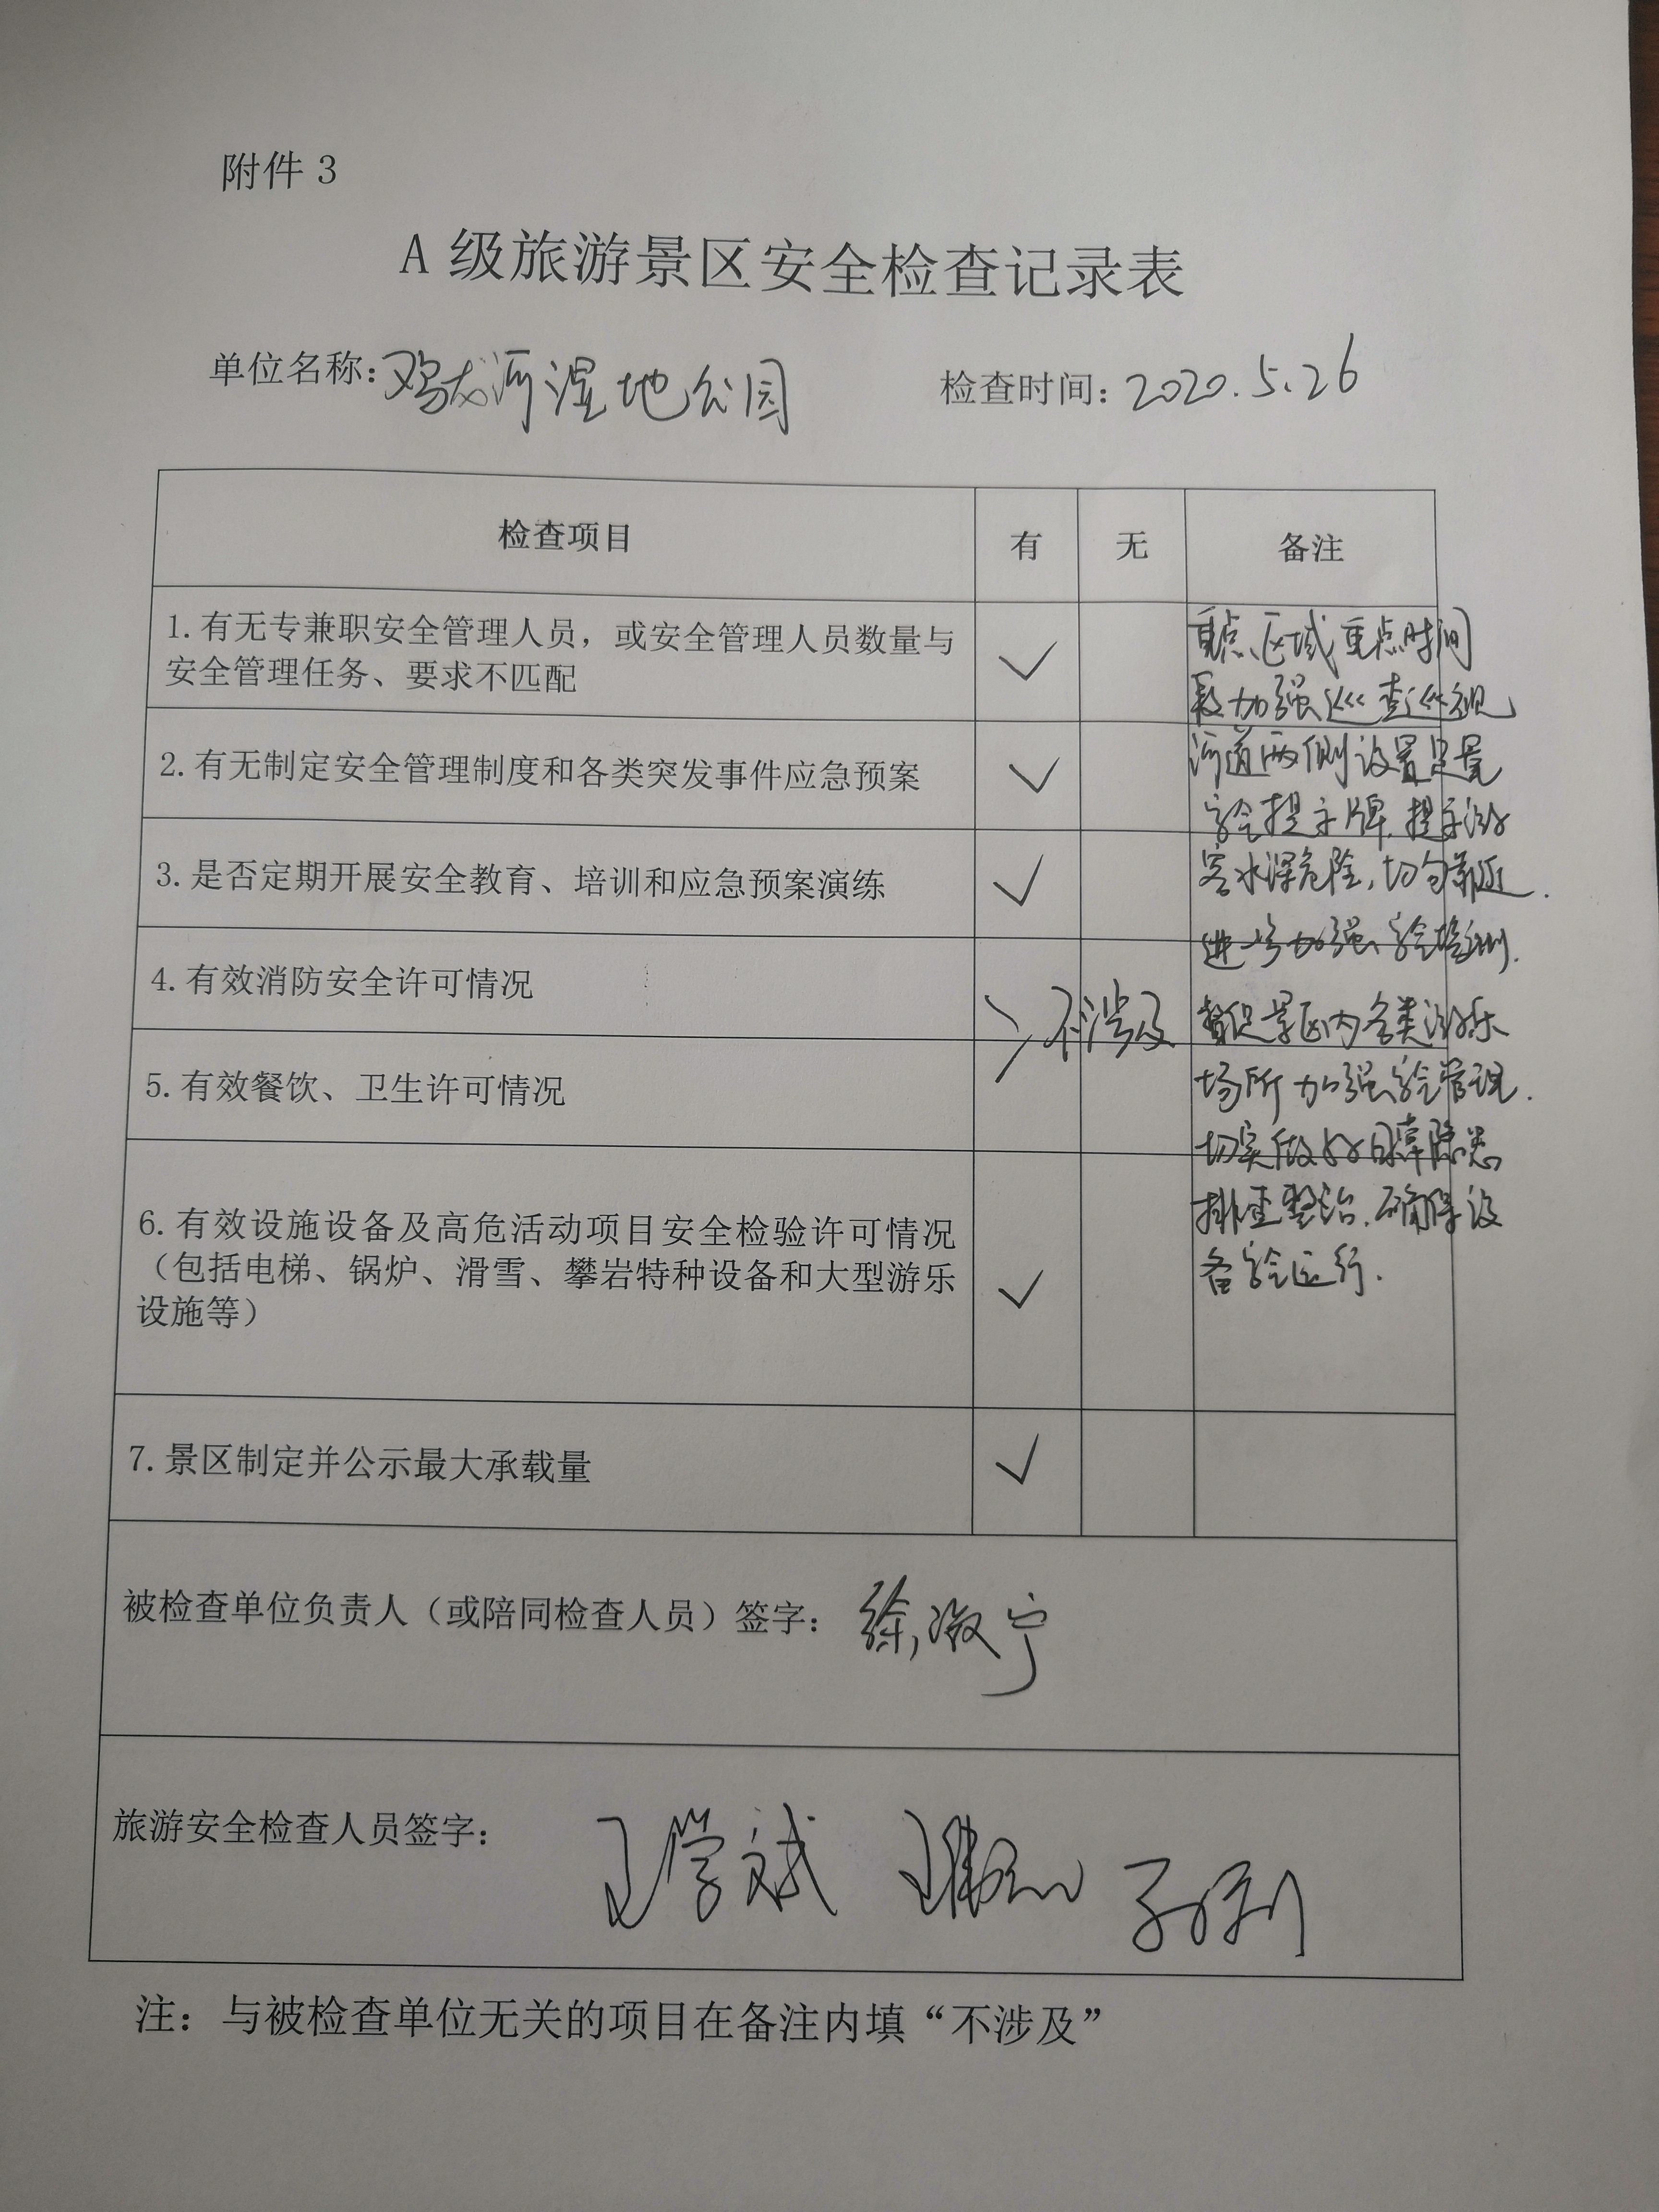 附件 3
A 级旅游景区安全检查记录表
单位名称：鸡龙河湿地公园 检查时间：2020.5.26
检查项目 有 无 备注
1.有无专兼职安全管理人员，或安全管理人员数量与
安全管理任务、要求不匹配 ✓
2.有无制定安全管理制度和各类突发事件应急预案 ✓
3.是否定期开展安全教育、培训和应急预案演练 ✓
4.有效消防安全许可情况
5.有效餐饮、卫生许可情况
不涉及
6.有效设施设备及高危活动项目安全检验许可情况
（包括电梯、锅炉、滑雪、攀岩特种设备和大型游乐
设施等） ✓
7.景区制定并公示最大承载量 ✓
重点区域重点时间
段加强巡查巡视
河道两侧设置足量
安全提示牌，提示游
客水深危险，切勿靠近.
进一步加强安全培训.
督促景区内各类游乐
场所加强安全管理.
切实做好日常隐患
排查整治，确保设
备安全运行.
被检查单位负责人（或陪同检查人员）签字：徐淑宁
旅游安全检查人员签字： 王学斌
注：与被检查单位无关的项目在备注内填“不涉及”